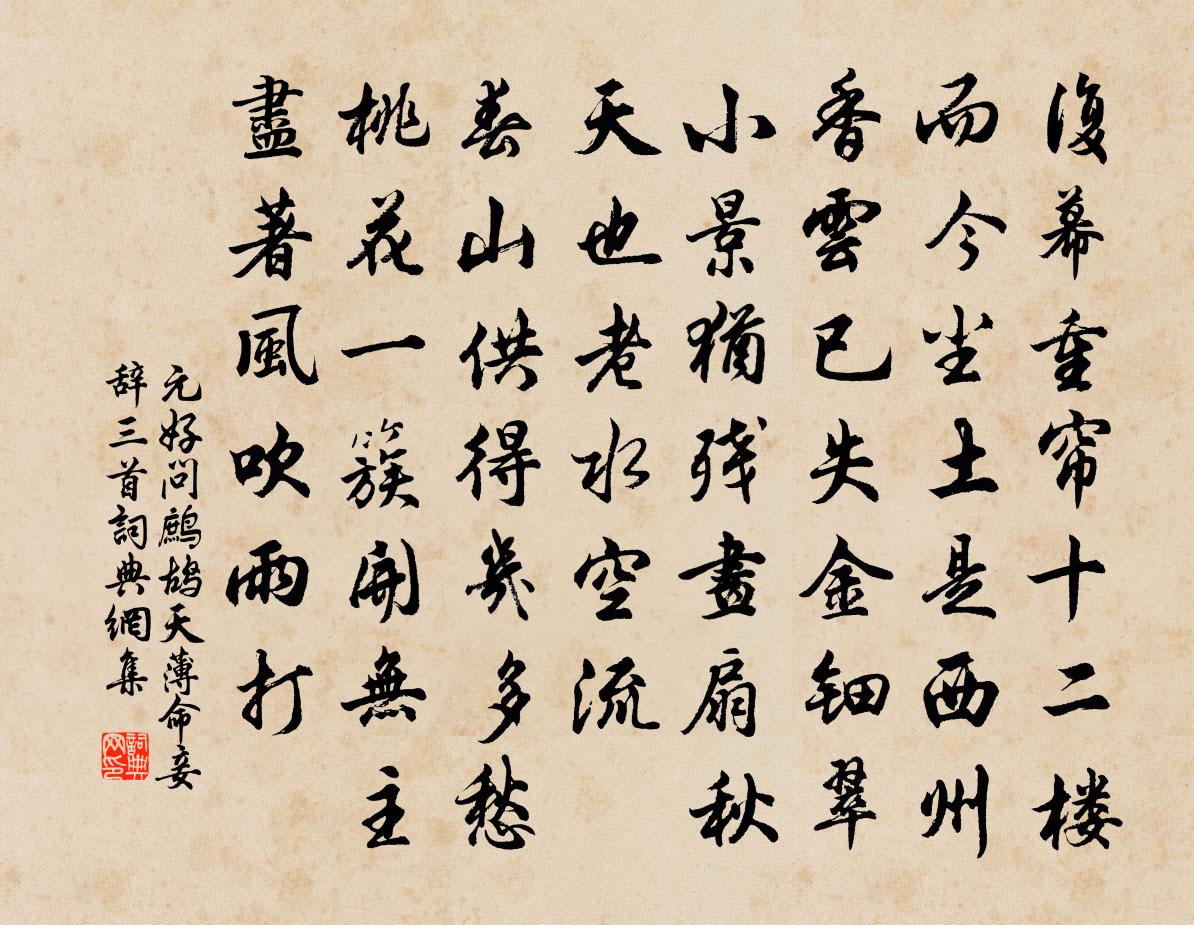 復幕重帘十二楼
而今尘土是西州
香雲已失金钿翠
小景猶残畫扇秋
天也老水空流
春山供得幾多愁
桃花一簇開無主
盡著風吹雨打
元好问鷓鴣天薄命妾
辞三首詞典網集
詞典网印